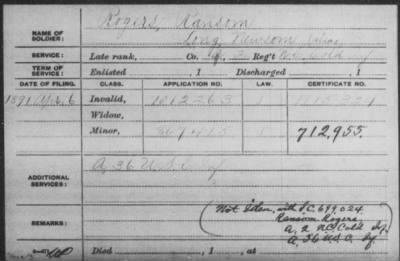 Rogers, Ransom
NAME OF SOLDIER: Long, Newsom, alias
SERVICE: Late rank, Co. 2 Reg't N.C. Cold
TERM OF SERVICE: Enlisted , 1 Discharged , 1
DATE OF FILING. CLASS. APPLICATION NO. LAW. CERTIFICATE NO.
1891 Apr. 6 Invalid, 1012263
Widow,
Minor, 712,955.
ADDITIONAL SERVICES: A, 36 U.S.C.
REMARKS: (Not Iden. with S.C. 699,024
Ransom Rogers
A, 2 N.C. Cold Inf.
A, 36 U.S.C. Inf.
Died , 1 , at